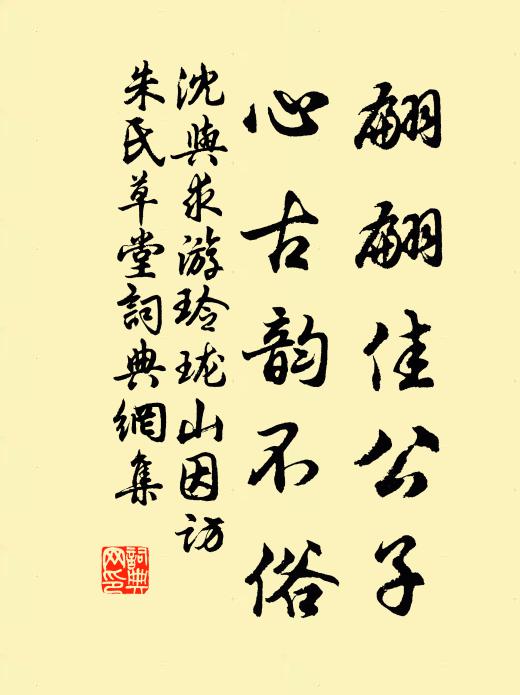 翩翩佳公子
心古韵不俗
沈與求游玲珑山因访
朱氏草堂詞典網集
詞典网印